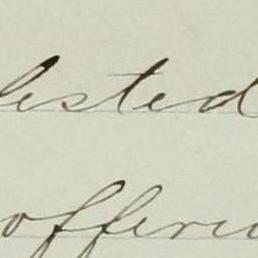 lested
offerin